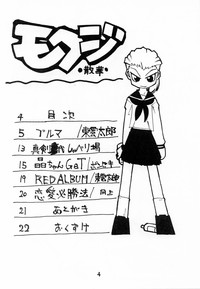 モケジ
・散華・
4 目次
5 ブルマ/東雲太郎
13 真剣 しゃべり場
15 晶ちゃんGeT/
19 RED ALBUM/東雲太郎
20 恋愛必勝法/同上
21 あとがき
22 おくずけ
4